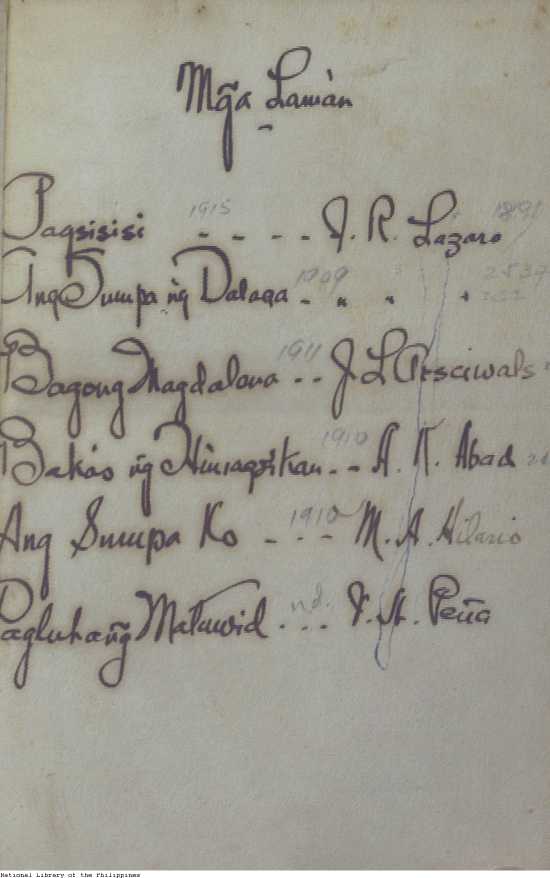 Mg̃a Lamán
Pagsisisi 1915 - - - - J. R. Lazaro
Ang Sumpa ng̃ Dalaga 1909 - " " "
Bagong Magdalena 1911 - - J L
Bakás ng̃ 1910 - - A. K. Abad
Ang Sumpa Ko 1910 - - - M. A. Hilario
Pagluhang̃ Matuwid n.d. - - - Peña
National Library of the Philippines